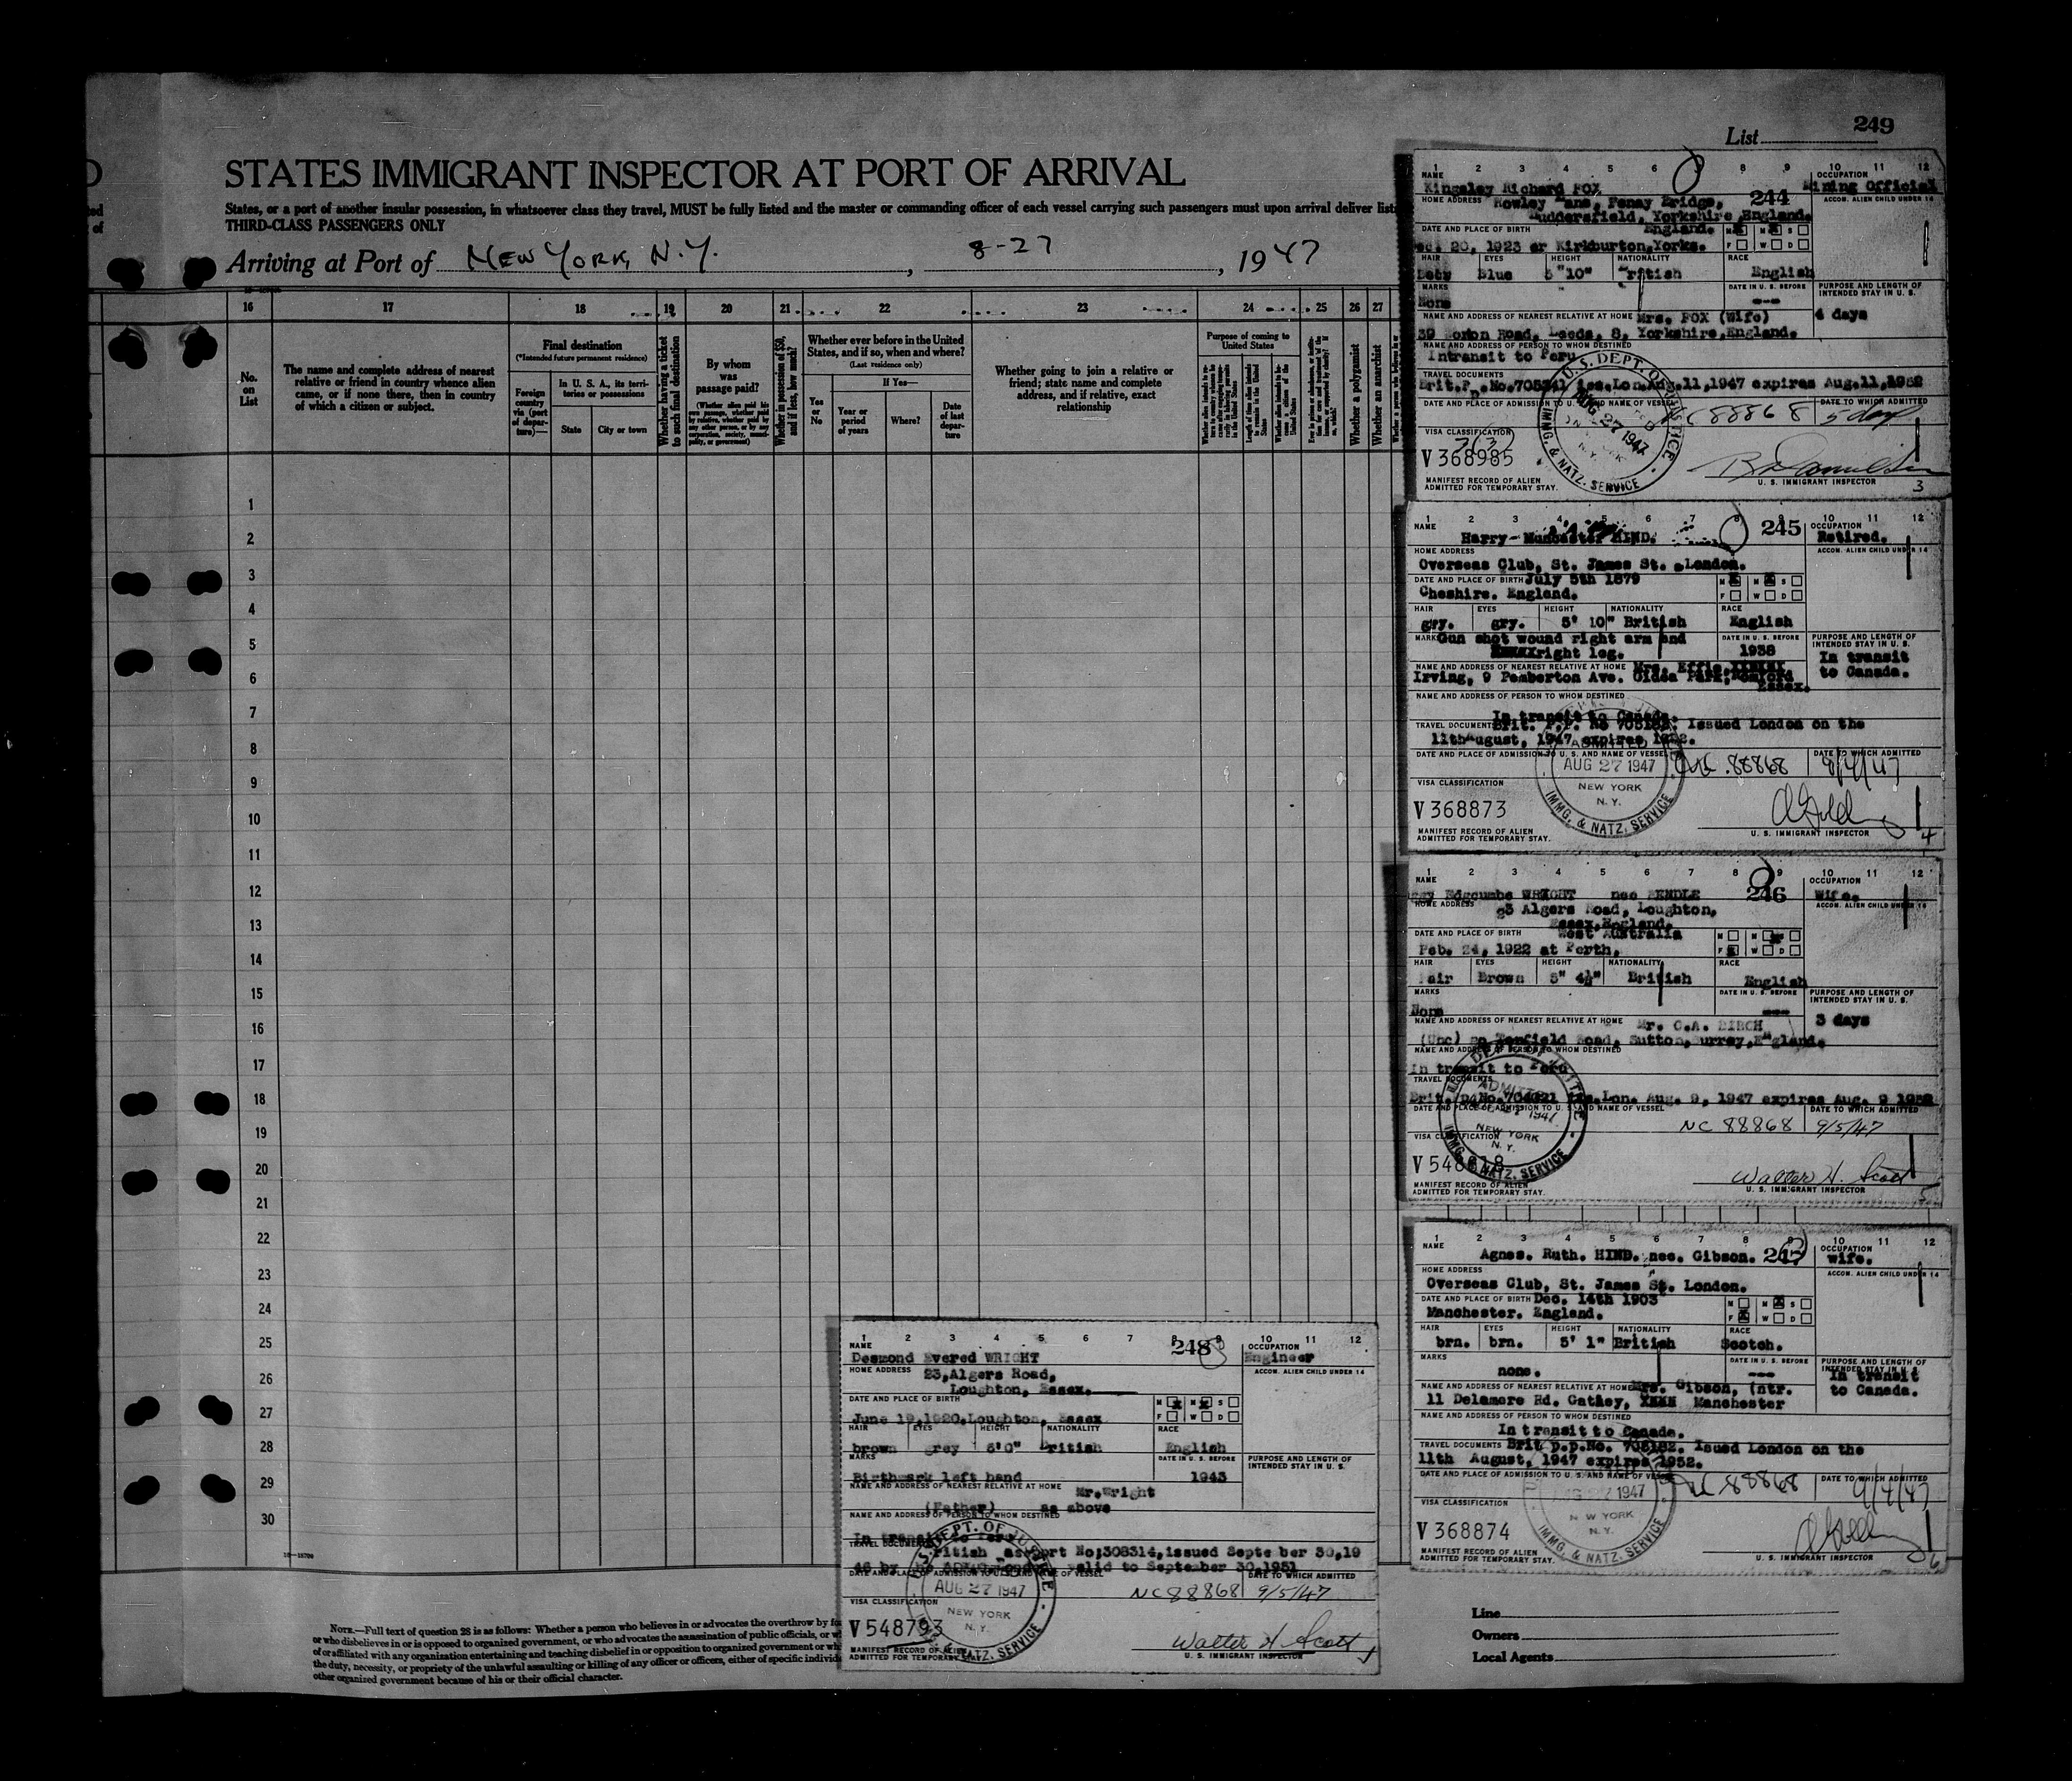 249
List
STATES IMMIGRANT INSPECTOR AT PORT OF ARRIVAL
States, or a port of another insular possession, in whatsoever class they travel, MUST be fully listed and the master or commanding officer of each vessel carrying such passengers must upon arrival deliver
THIRD-CLASS PASSENGERS ONLY
Arriving at Port of NEW YORK, N.Y., 8-27, 1947
16 17 18 19 20 21 22 23 24 25 26 27
No. on List
The name and complete address of nearest relative or friend in country whence alien came, or if none there, then in country of which a citizen or subject.
Final destination
(*Intended future permanent residence)
Foreign country via (port of departure)—
In U. S. A., its territories or possessions
State
City or town
Whether having a ticket to such final destination
By whom was passage paid?
(Whether alien paid his own passage, whether paid by relative, whether paid by any other person, or by any corporation, society, municipality, or government)
Whether in possession of $50, and if less, how much?
Whether ever before in the United States, and if so, when and where?
(Last residence only)
Yes or No
If Yes—
Year or period of years
Where?
Date of last departure
Whether going to join a relative or friend; state name and complete address, and if relative, exact relationship
Purpose of coming to United States
Whether a polygamist
Whether an anarchist
1
2
3
4
5
6
7
8
9
10
11
12
13
14
15
16
17
18
19
20
21
22
23
24
25
26
27
28
29
30
NOTE.—Full text of question 28 is as follows: Whether a person who believes in or advocates the overthrow by
or who disbelieves in or is opposed to organized government, or who advocates the assassination of public officials, or
of or affiliated with any organization entertaining and teaching disbelief in or opposition to organized government or
the duty, necessity, or propriety of the unlawful assaulting or killing of any officer or officers, either of specific
other organized government because of his or their official character.
1 2 3 4 5 6 8 9 10 11 12
NAME Kingsley Richard FOX
244
OCCUPATION Mining Official
HOME ADDRESS Rowley Lane, Fenay Bridge,
Huddersfield, Yorkshire, England.
ACCOM. ALIEN CHILD UNDER 14
DATE AND PLACE OF BIRTH England.
20, 1923 at Kirkburton, Yorks.
M M S
F W D
HAIR EYES Blue HEIGHT 5 "10" NATIONALITY British RACE English
MARKS None
DATE IN U. S. BEFORE ---
PURPOSE AND LENGTH OF INTENDED STAY IN U. S. 4 days
NAME AND ADDRESS OF NEAREST RELATIVE AT HOME Mrs. FOX (Wife)
39 Road, Leeds, 8, Yorkshire, England.
NAME AND ADDRESS OF PERSON TO WHOM DESTINED
Intransit to Peru
TRAVEL DOCUMENTS
Brit.P. No. iss.Lon.Aug.11,1947 expires Aug.11,1952
DATE AND PLACE OF ADMISSION TO U. S. AND NAME OF VESSEL NC 88868
DATE TO WHICH ADMITTED 5 day
U. S. DEPT. OF JUSTICE
AUG 27 1947
N. Y.
IMMG. & NATZ. SERVICE
VISA CLASSIFICATION 3(3)
V 368985
MANIFEST RECORD OF ALIEN ADMITTED FOR TEMPORARY STAY.
U. S. IMMIGRANT INSPECTOR
3
1 2 3 4 5 6 7 8 9 10 11 12
NAME Harry Muncaster HIND.
245
OCCUPATION Retired.
HOME ADDRESS
Overseas Club, St. James St. London.
ACCOM. ALIEN CHILD UNDER 14
DATE AND PLACE OF BIRTH July 5th 1879
Cheshire. England.
M M S
F W D
HAIR gry. EYES gry. HEIGHT 5' 10" NATIONALITY British RACE English
MARKS Gun shot wound right arm and
right leg.
DATE IN U. S. BEFORE 1938
PURPOSE AND LENGTH OF INTENDED STAY IN U. S. In transit to Canada.
NAME AND ADDRESS OF NEAREST RELATIVE AT HOME Mrs. Effie
Irving, 9 Pemberton Ave. Gidea Park, Romford
Essex.
NAME AND ADDRESS OF PERSON TO WHOM DESTINED
In transit to Canada.
TRAVEL DOCUMENTS Brit. P.P. No Issued London on the
11th August, 1947 expires 1952.
DATE AND PLACE OF ADMISSION TO U. S. AND NAME OF VESSEL NC 88868
DATE TO WHICH ADMITTED 9/4/47
ADMITTED
AUG 27 1947
NEW YORK
N. Y.
IMMG. & NATZ. SERVICE
VISA CLASSIFICATION
V 368873
MANIFEST RECORD OF ALIEN ADMITTED FOR TEMPORARY STAY.
U. S. IMMIGRANT INSPECTOR
4
1 2 3 4 5 6 7 8 9 10 11 12
NAME Edgcumbe WRIGHT nee BENDLE
246
OCCUPATION Wife.
HOME ADDRESS 23 Algers Road, Loughton,
Essex, England.
ACCOM. ALIEN CHILD UNDER 14
DATE AND PLACE OF BIRTH West Australia
Feb. 24, 1922 at Perth,
M M S
F W D
HAIR Fair EYES Brown HEIGHT 5" 4½" NATIONALITY British RACE English
MARKS None
DATE IN U. S. BEFORE ---
PURPOSE AND LENGTH OF INTENDED STAY IN U. S. 3 days
NAME AND ADDRESS OF NEAREST RELATIVE AT HOME Mr. C.A. BIRCH
(Unc) Road, Sutton, Surrey, England.
NAME AND ADDRESS OF PERSON TO WHOM DESTINED
In transit to Peru
TRAVEL DOCUMENTS
Brit. p No. iss.Lon. Aug. 9, 1947 expires Aug. 9 1952
DATE AND PLACE OF ADMISSION TO U. S. AND NAME OF VESSEL NC 88868
DATE TO WHICH ADMITTED 9/5/47
ADMITTED
1947
NEW YORK
N. Y.
IMMG. & NATZ. SERVICE
VISA CLASSIFICATION
MANIFEST RECORD OF ALIEN ADMITTED FOR TEMPORARY STAY.
Walter H. Scott
U. S. IMMIGRANT INSPECTOR
5
1 2 3 4 5 6 7 8 9 10 11 12
NAME Agnes. Ruth. HIND. nee. Gibson.
247
OCCUPATION wife.
HOME ADDRESS
Overseas Club, St. James St. London.
ACCOM. ALIEN CHILD UNDER 14
DATE AND PLACE OF BIRTH Dec. 14th 1903
Manchester. England.
M M S
F W D
HAIR brn. EYES brn. HEIGHT 5' 1" NATIONALITY British RACE Scotch.
MARKS none.
DATE IN U. S. BEFORE ---
PURPOSE AND LENGTH OF INTENDED STAY IN U. S. In transit to Canada.
NAME AND ADDRESS OF NEAREST RELATIVE AT HOME Mrs. Gibson, (mtr.
11 Delamere Rd. Gatley, Manchester
NAME AND ADDRESS OF PERSON TO WHOM DESTINED
In transit to Canada.
TRAVEL DOCUMENTS Brit p.p.No. 705182. Issued London on the
11th August, 1947 expires 1952.
DATE AND PLACE OF ADMISSION TO U. S. AND NAME OF VESSEL NC 88868
DATE TO WHICH ADMITTED 9/4/47
AUG 27 1947
NEW YORK
N. Y.
IMMG. & NATZ. SERVICE
VISA CLASSIFICATION
V 368874
MANIFEST RECORD OF ALIEN ADMITTED FOR TEMPORARY STAY.
U. S. IMMIGRANT INSPECTOR
6
1 2 3 4 5 6 7 8 9 10 11 12
NAME Desmond Evered WRIGHT
248
OCCUPATION Engineer
HOME ADDRESS 23, Algers Road,
Loughton, Essex.
ACCOM. ALIEN CHILD UNDER 14
DATE AND PLACE OF BIRTH
June 19, 1920. Loughton, Essex
M M S
F W D
HAIR brown EYES grey HEIGHT 6'0" NATIONALITY British RACE English
MARKS Birthmark left hand
DATE IN U. S. BEFORE 1943
PURPOSE AND LENGTH OF INTENDED STAY IN U. S.
NAME AND ADDRESS OF NEAREST RELATIVE AT HOME Mr. Wright
(Father) as above
NAME AND ADDRESS OF PERSON TO WHOM DESTINED
In transit to Peru
TRAVEL DOCUMENTS British Passport No; 308314, issued September 30, 19
46 by London valid to September 30, 1951
DATE AND PLACE OF ADMISSION TO U. S. AND NAME OF VESSEL NC 88868
DATE TO WHICH ADMITTED 9/5/47
U. S. DEPT. OF JUSTICE
AUG 27 1947
NEW YORK
N. Y.
IMMG. & NATZ. SERVICE
VISA CLASSIFICATION
V 548793
MANIFEST RECORD OF ALIEN ADMITTED FOR TEMPORARY STAY.
Walter H. Scott
U. S. IMMIGRANT INSPECTOR
Line
Owners
Local Agents